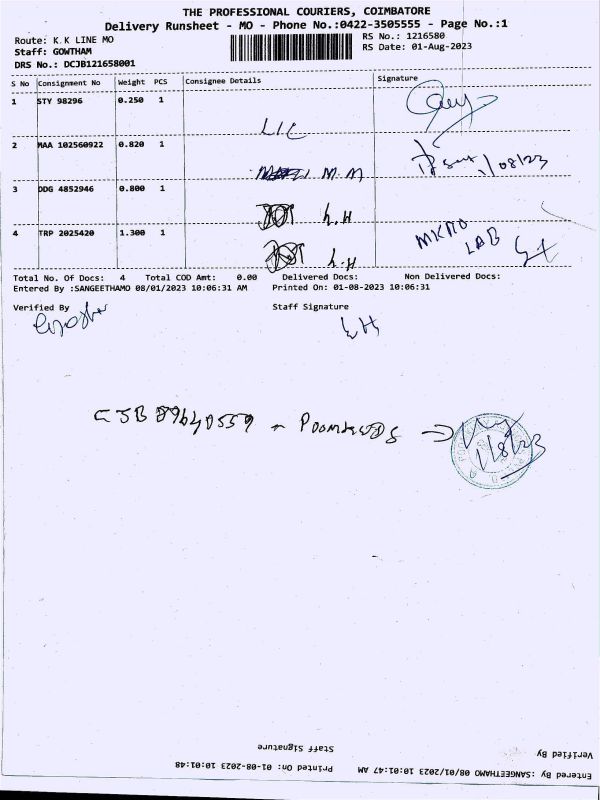 THE PROFESSIONAL COURIERS, COIMBATORE
Delivery Runsheet - MO - Phone No.:0422-3505555 - Page No.:1
Route: K.K LINE MO
Staff: GOWTHAM
DRS No.: DCJB121658001
RS No.: 1216580
RS Date: 01-Aug-2023
S No Consignment No Weight PCS Consignee Details Signature
1 STY 98296 0.250 1
LIC
2 MAA 102560922 0.820 1
M.M
1/08/23
3 DDG 4852946 0.800 1
4 TRP 2025420 1.300 1
LAB
Total No. Of Docs: 4 Total COD Amt: 0.00 Delivered Docs: Non Delivered Docs:
Entered By :SANGEETHAMO 08/01/2023 10:06:31 AM Printed On: 01-08-2023 10:06:31
Verified By Staff Signature
1/8/23
Staff Signature
Verified By
Printed On: 01-08-2023 10:01:48
Entered By :SANGEETHAMO 08/01/2023 10:01:47 AM